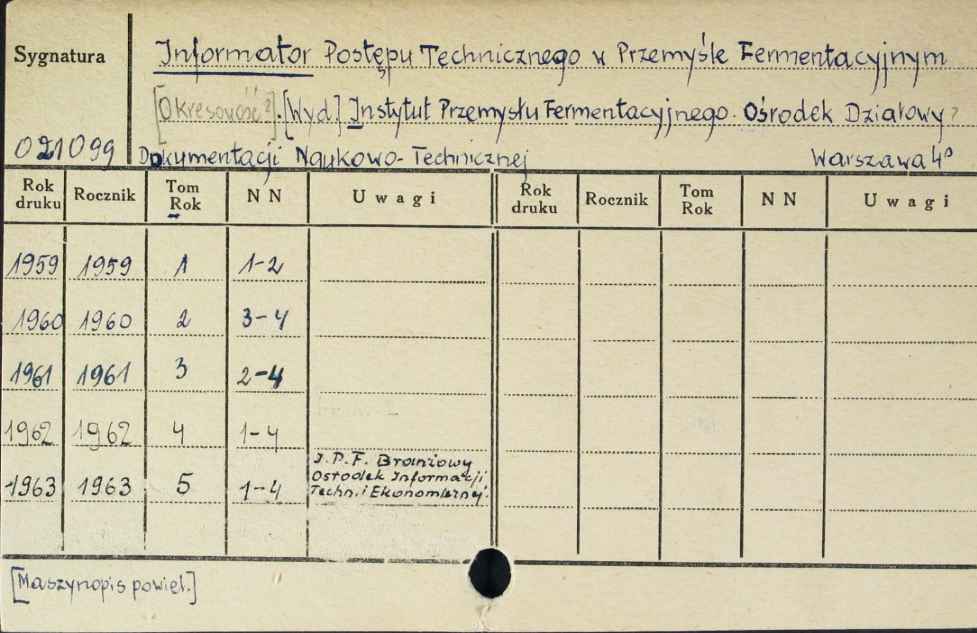 Sygnatura
Informator Postępu Technicznego w Przemyśle Fermentacyjnym
[Okresowość?]. [Wyd.] Instytut Przemysłu Fermentacyjnego. Ośrodek Działowy?
021099 Dokumentacji Naukowo-Technicznej Warszawa 4°
Rok druku Rocznik Tom Rok N N Uwagi Rok druku Rocznik Tom Rok N N Uwagi
1959 1959 1 1-2
1960 1960 2 3-4
1961 1961 3 2-4
1962 1962 4 1-4
1963 1963 5 1-4 I.P.F. Branżowy
Ośrodek Informacji
Techn. i Ekonomicznej.
[Maszynopis powiel.]